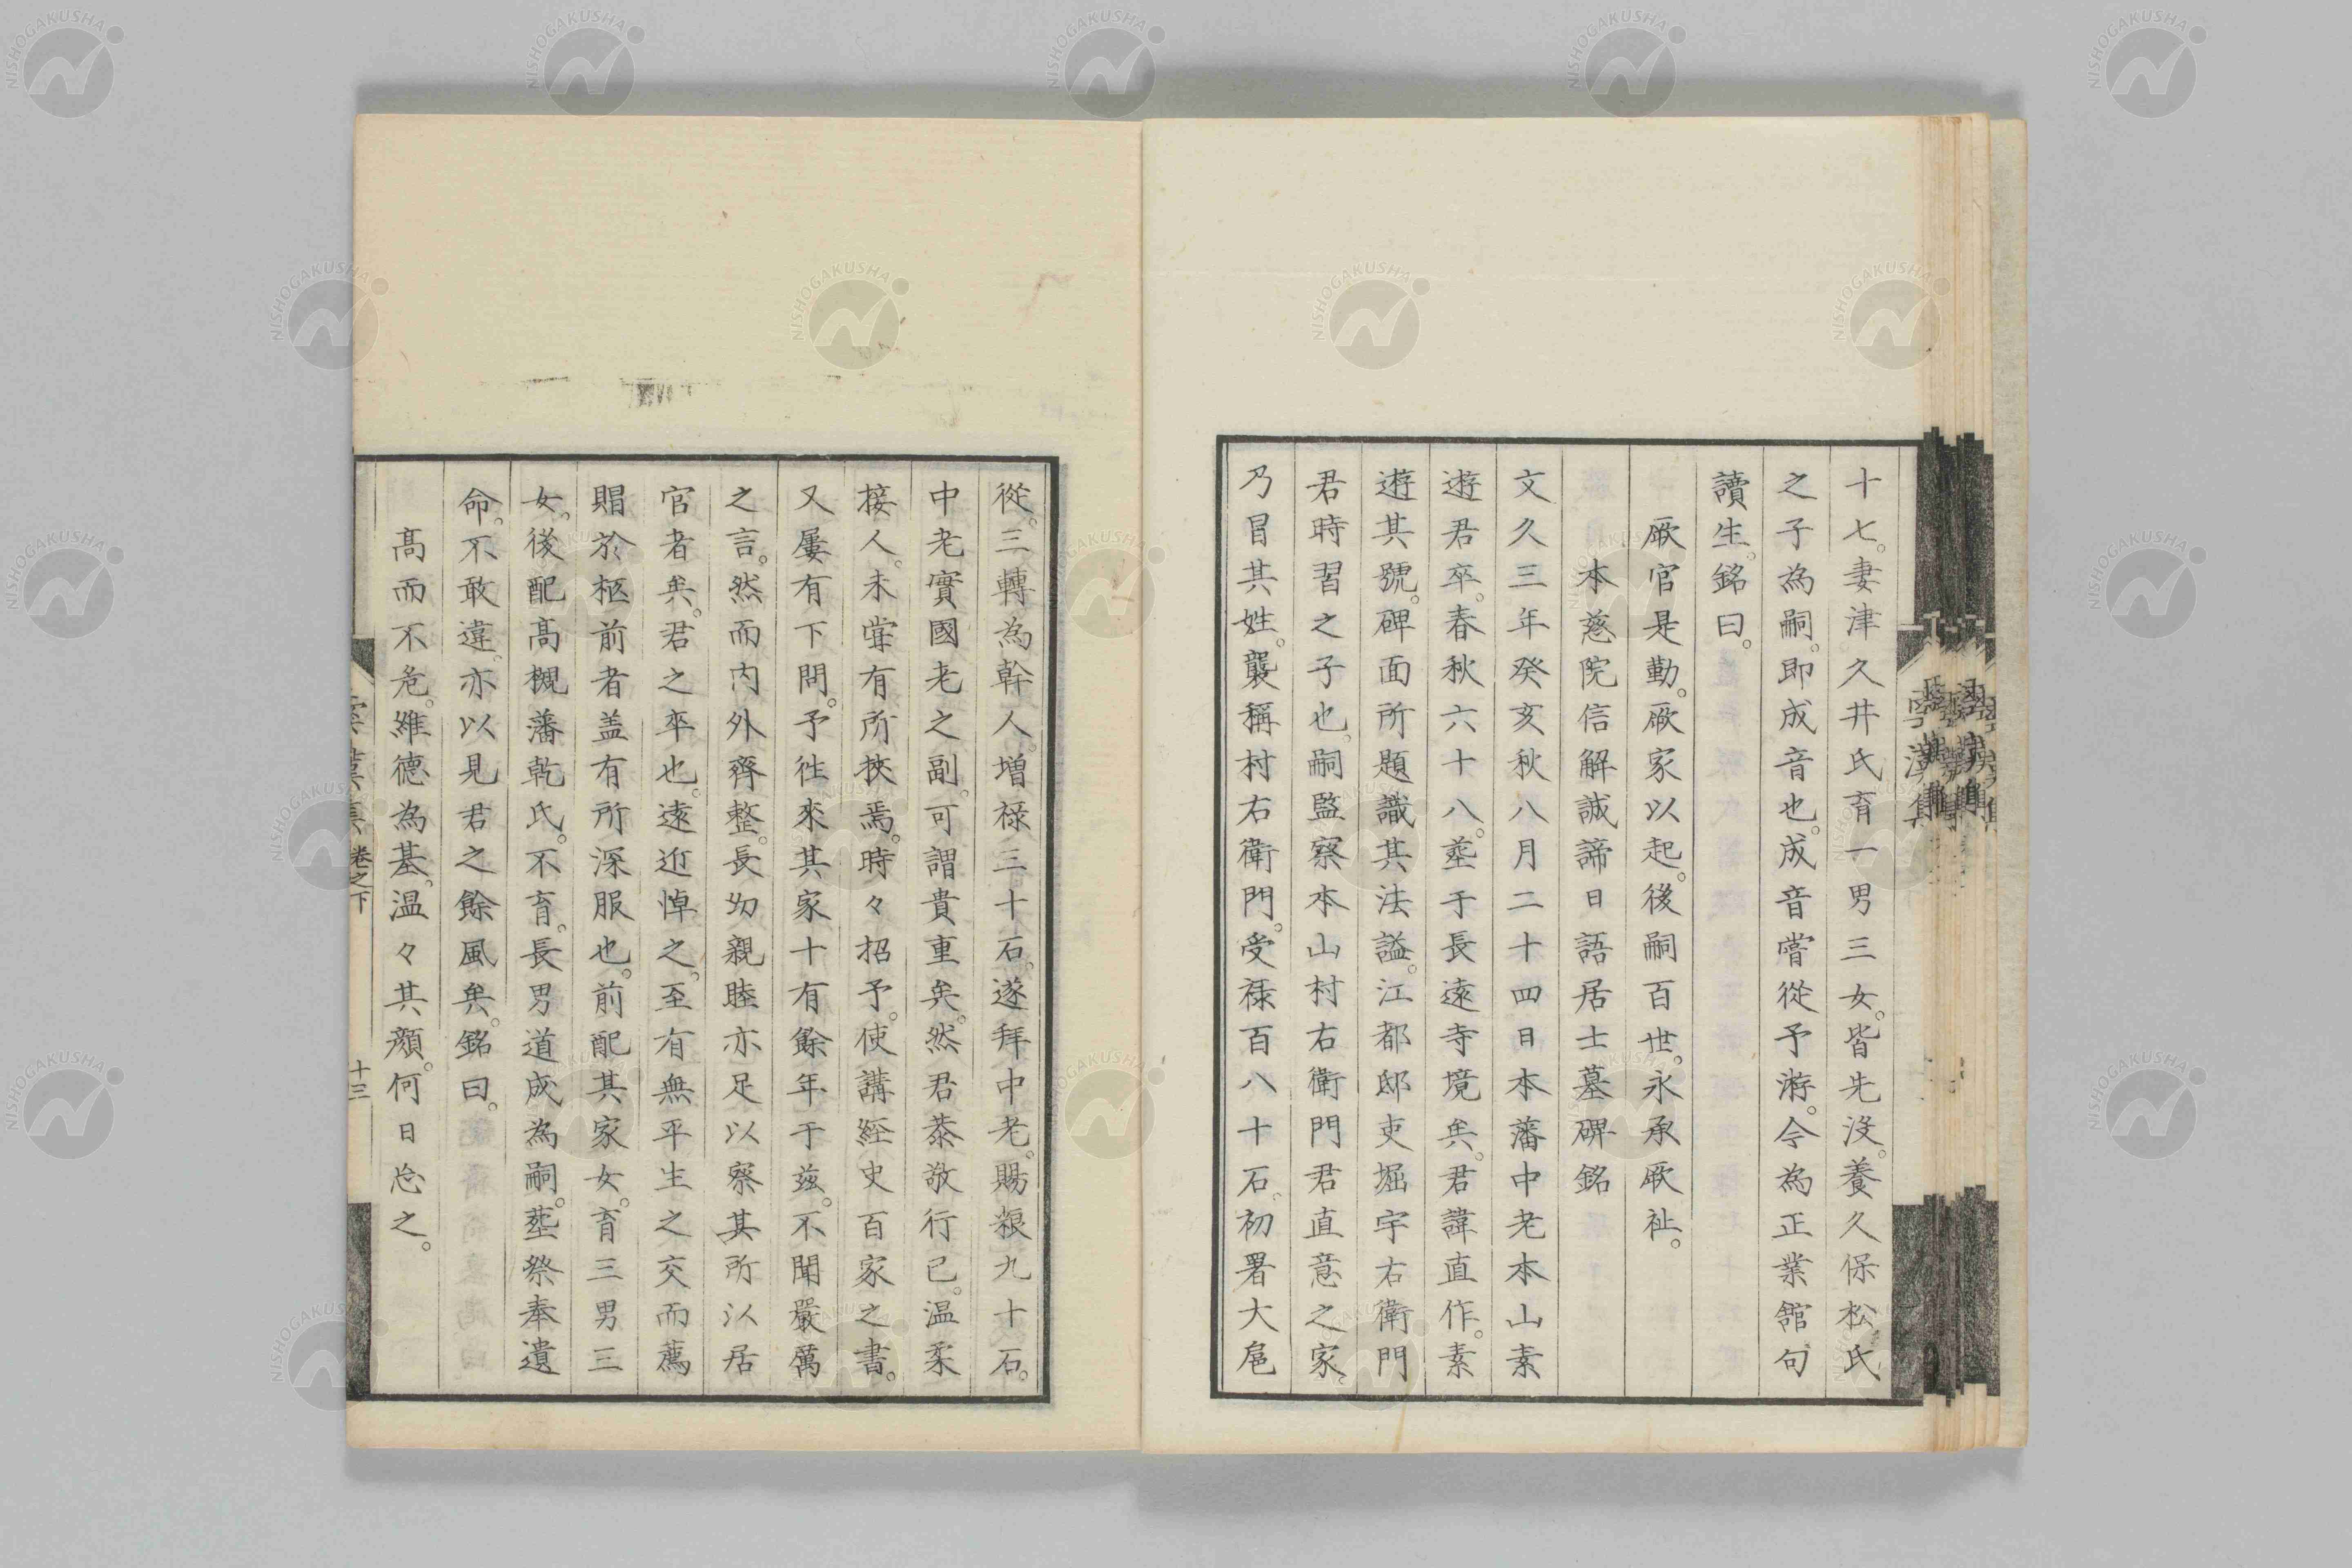 十七。妻津久井氏育一男三女。皆先沒。養久保松氏
之子為嗣。即成音也。成音嘗從予游。今為正業舘句
讀生。銘曰。
厥官是勤。厥家以起。後嗣百世。永承厥祉。
本慈院信解誠諦日語居士墓碑銘
文久三年癸亥秋八月二十四日本藩中老本山素
遊君卒。春秋六十八。葬于長遠寺境矣。君諱直作。素
遊其號。碑面所題識其法諡。江都邸吏堀宇右衛門
君時習之子也。嗣監察本山村右衛門君直意之家。
乃冒其姓。襲稱村右衛門。受禄百八十石。初署大扈
從。三轉為幹人。增禄三十石。遂拜中老。賜粮九十石。
中老實國老之副。可謂貴重矣。然君恭敬行己。温柔
接人。未嘗有所挾焉。時々招予。使講經史百家之書。
又屢有下問。予往來其家十有餘年于茲。不聞嚴厲
之言。然而内外齊整。長幼親睦亦足以察其所以居
官者矣。君之卒也。遠近悼之。至有無平生之交而薦
賵於柩前者盖有所深服也。前配其家女。育三男三
女。後配髙槻藩乾氏。不育。長男道成為嗣。葬祭奉遺
命。不敢違。亦以見君之餘風矣。銘曰。
髙而不危。維德為基。温々其顏。何日忘之。
卷之下
十三